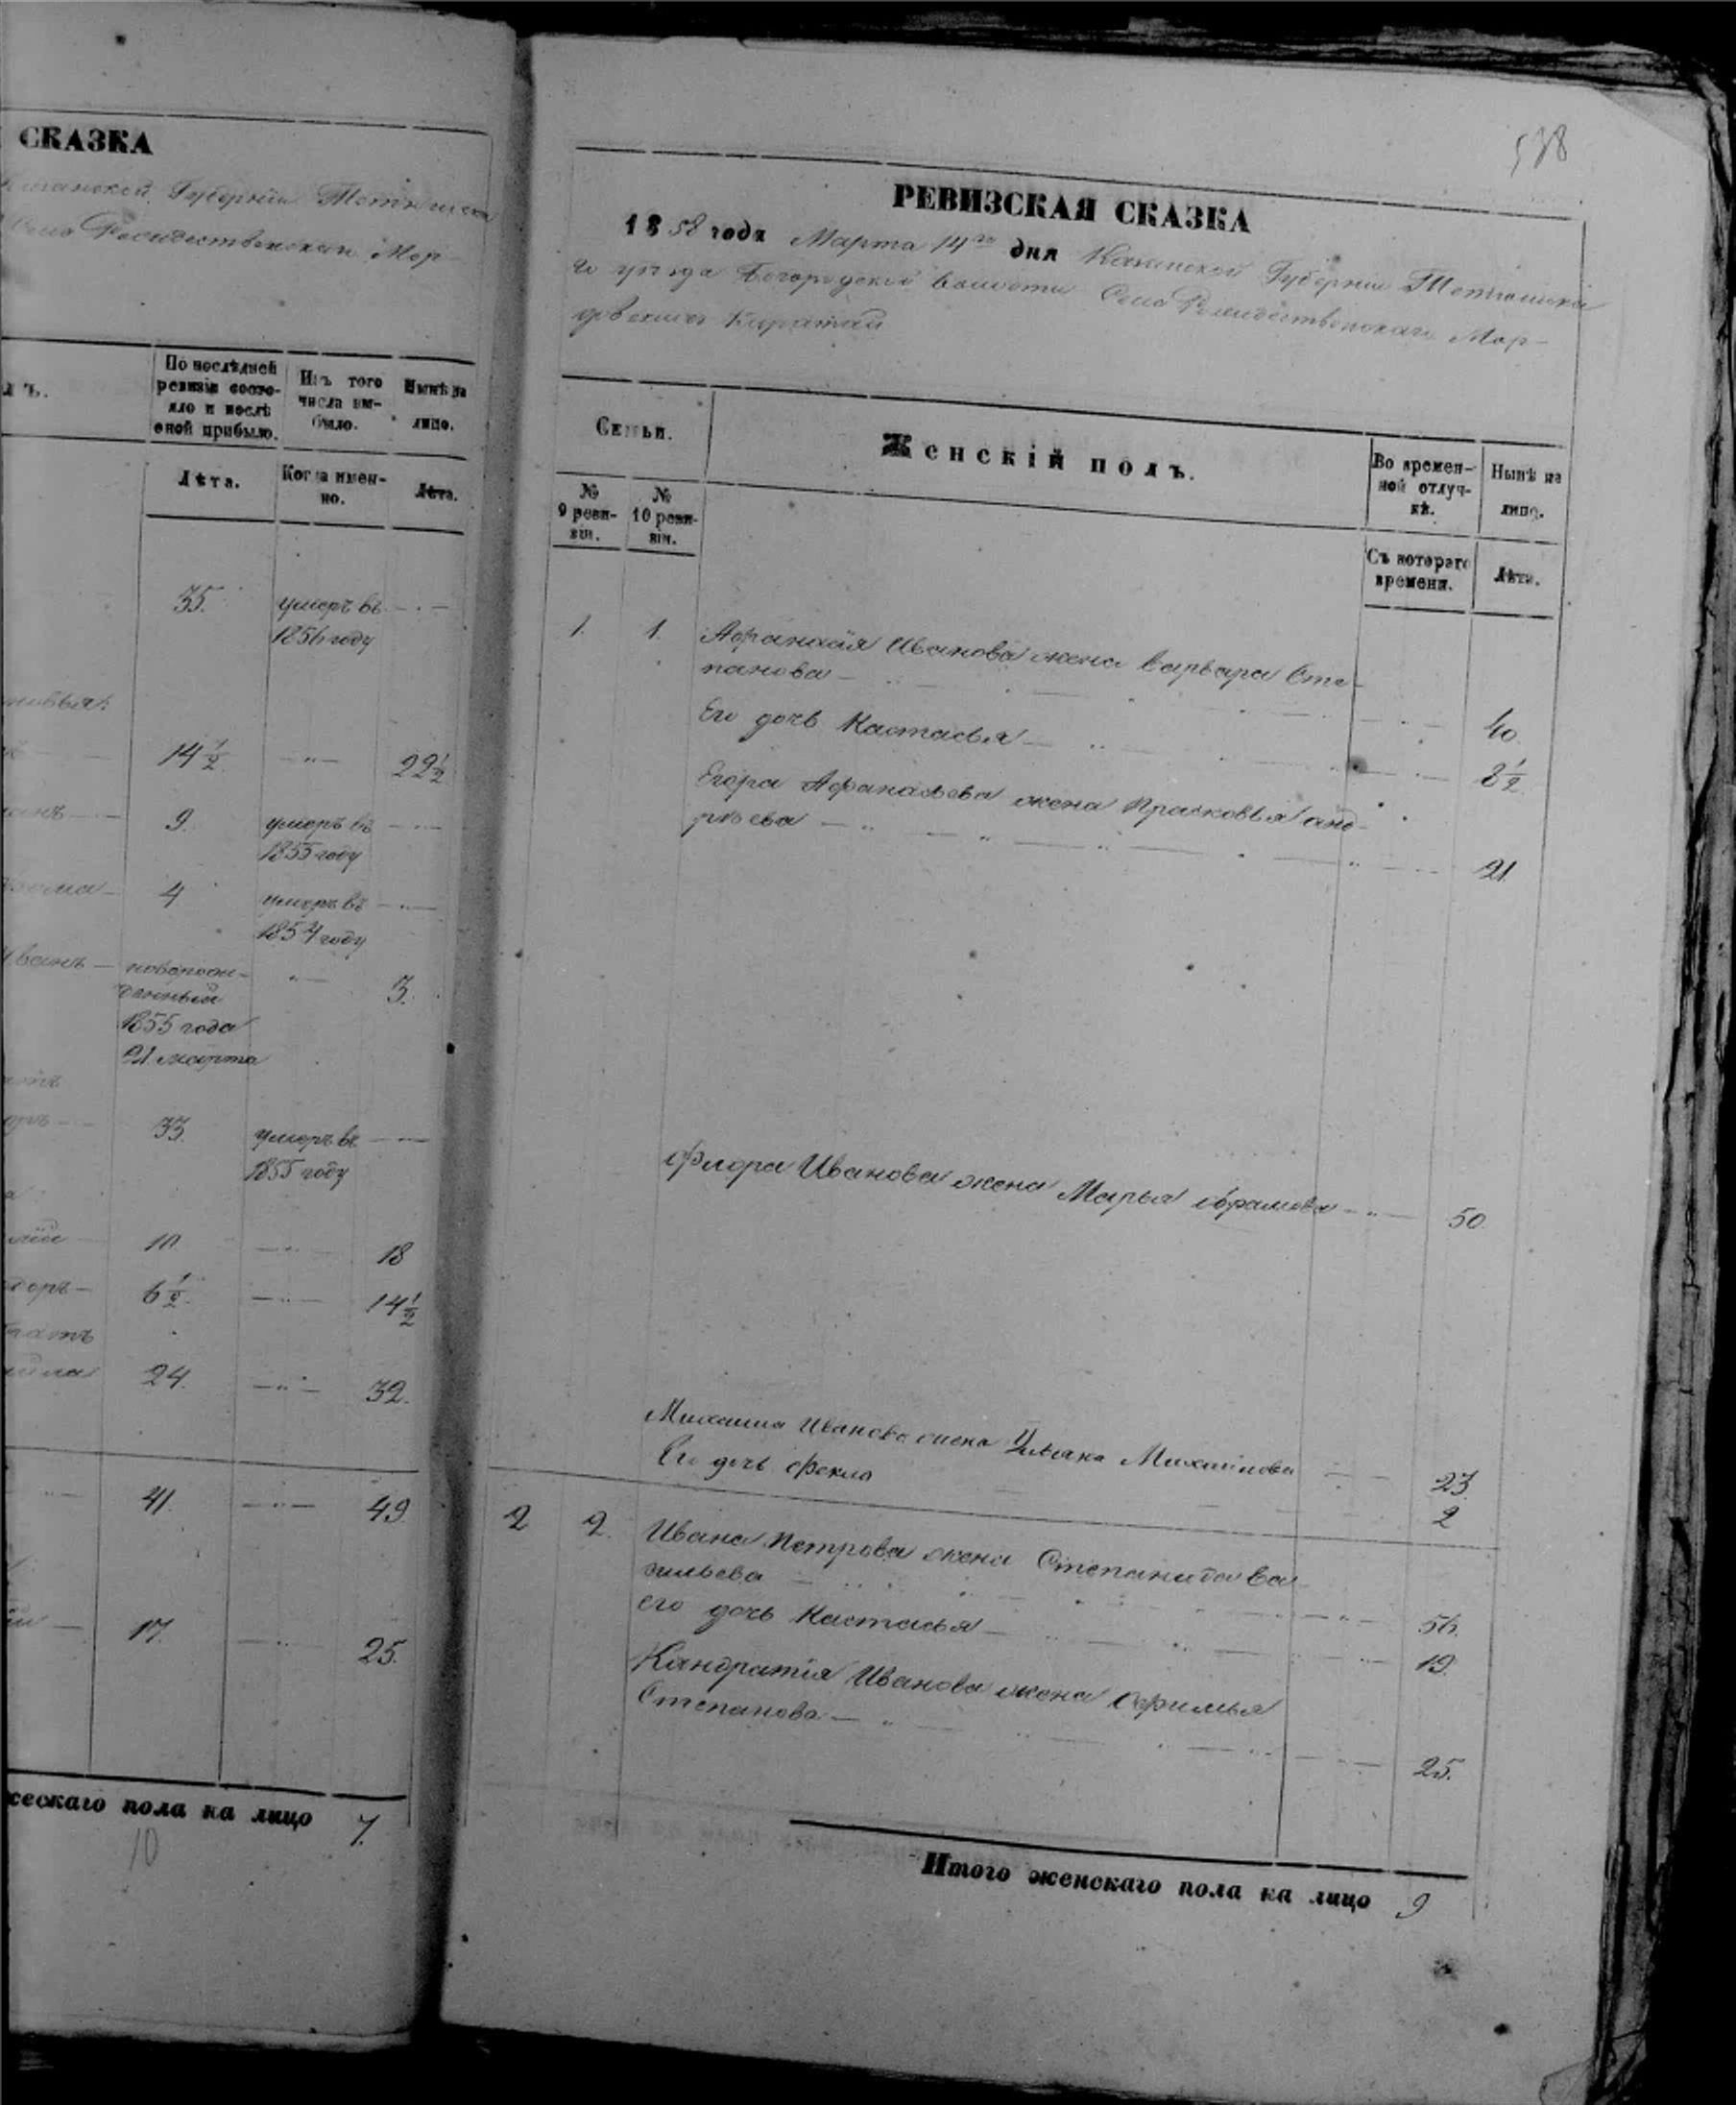 СКАЗКА
Губерніи Тетюшска
Село Рождественскаго Мор-
По послѣдней ревизіи состо-яло и послѣ оной прибыло.
Изъ того числа вы-было.
Нынѣ на лицо.
Лѣта.
Когда имен-но.
Лѣта.
35. умеръ въ
1856 году
14 1/2 22 1/2
9. умеръ въ
1855 году
4 умеръ въ
1854 году
Иванъ новорож-
денный 3.
1855 года
21 марта
33. умеръ въ
1855 году
10. 18
6 1/2 14 1/2
братъ
24. 32.
41. 49.
17. 25.
жескаго пола на лицо 7.
10
538
РЕВИЗСКАЯ СКАЗКА
1858 года Марта 14го дня Казанской Губерніи Тетюшска
го уѣзда Богородской волости Село Рождественскаго Мор-
довскихъ Каратай
Семьи.
Женскій полъ.
Во времен-ной отлуч-кѣ.
Нынѣ на лицо.
№ 9 реви-зіи.
№ 10 реви-зіи.
Съ котораго времени.
Лѣта.
1. 1. Афанасія Иванова жена Варвара Сте-
панова 40.
Его дочь Настасья 8 1/2
Егора Афанасьева жена Прасковья Анд-
рѣева 21.
Флора Иванова жена Марья Абрамова 50.
Михаила Иванова жена Ульяна Михайлова 23.
Его дочь Фекла 2
2 2. Ивана Петрова жена Степанида Ва
сильева 56.
его дочь Настасья 19.
Кандратія Иванова жена Ефимья
Степанова 25.
Итого женскаго пола на лицо 9